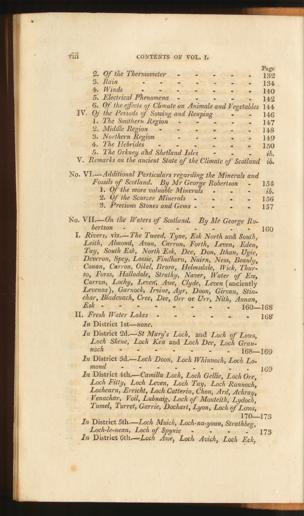 viii CONTENTS OF VOL. I.
Page
2. Of the Thermometer - - - - - 132
3. Rain - - - - - - - 134
4. Winds - - - - - - - 140
5. Electrical Phenomena - - - - - 142
6. Of the effects of Climate on Animals and Vegetables 144
IV. Of the Periods of Sowing and Reaping - - - 146
1. The Southern Region - - - - - 147
2. Middle Region - - - - - - 148
3. Northern Region - - - - - 149
4. The Hebrides - - - - - - 150
5. The Orkney and Shetland Isles - - - ib.
V. Remarks on the ancient State of the Climate of Scotland ib.
No. VI.—Additional Particulars regarding the Minerals and
Fossils of Scotland. By Mr George Robertson - 154
1. Of the more valuable Minerals - - - ib.
2. Of the Scarcer Minerals - - - - 156
3. Precious Stones and Gems - - - - 157
No. VII.—On the Waters of Scotland. By Mr George Ro-
bertson - - - - - - - 160
I. Rivers, viz.—The Tweed, Tyne, Esk North and South,
Leith, Almond, Avon, Carron, Forth, Leven, Eden,
Tay, South Esk, North Esk, Dee, Don, Ithan, Ugie,
Deveron, Spey, Lossie, Findhorn, Nairn, Ness, Beauly,
Conan, Carron, Oikel, Brora, Helmsdale, Wick, Thur-
so, Forss, Halladale, Strathy, Naver, Water of Ew,
Carron, Lochy, Leven, Awe, Clyde, Leven (anciently
Levenax), Garnock, Irvine, Ayr, Doon, Girvan, Stin-
char, Bladenoch, Cree, Dee, Orr or Urr, Nith, Annan,
Esk - - - - - - - 160—168
II. Fresh Water Lakes - - - - - 168
In District 1st—none.
In District 2d.—St Mary's Loch, and Loch of Lows,
Loch Skene, Loch Ken and Loch Dee, Loch Gran-
noch - - - - - - 168—169
In District 3d.—Loch Doon, Loch Whinnoch, Loch Lo-
mond - - - - - - - 169
In District 4th.—Camilla Loch, Loch Gellie, Loch Ore,
Loch Fitty, Loch Leven, Loch Tay, Loch Rannoch,
Lochearn, Erricht, Loch Catterin, Chon, Ard, Achray,
Venachar, Voil, Lubnaig, Loch of Monteith, Lydoch,
Tumel, Turret, Garrie, Dochart, Lyon, Loch of Lows,
170—173
In District 5th.—Loch Muick, Loch-na-youn, Strathbeg,
Loch-le-nean, Loch of Spynie - - - - 173
In District 6th.—Loch Awe, Loch Avich, Loch Eck,